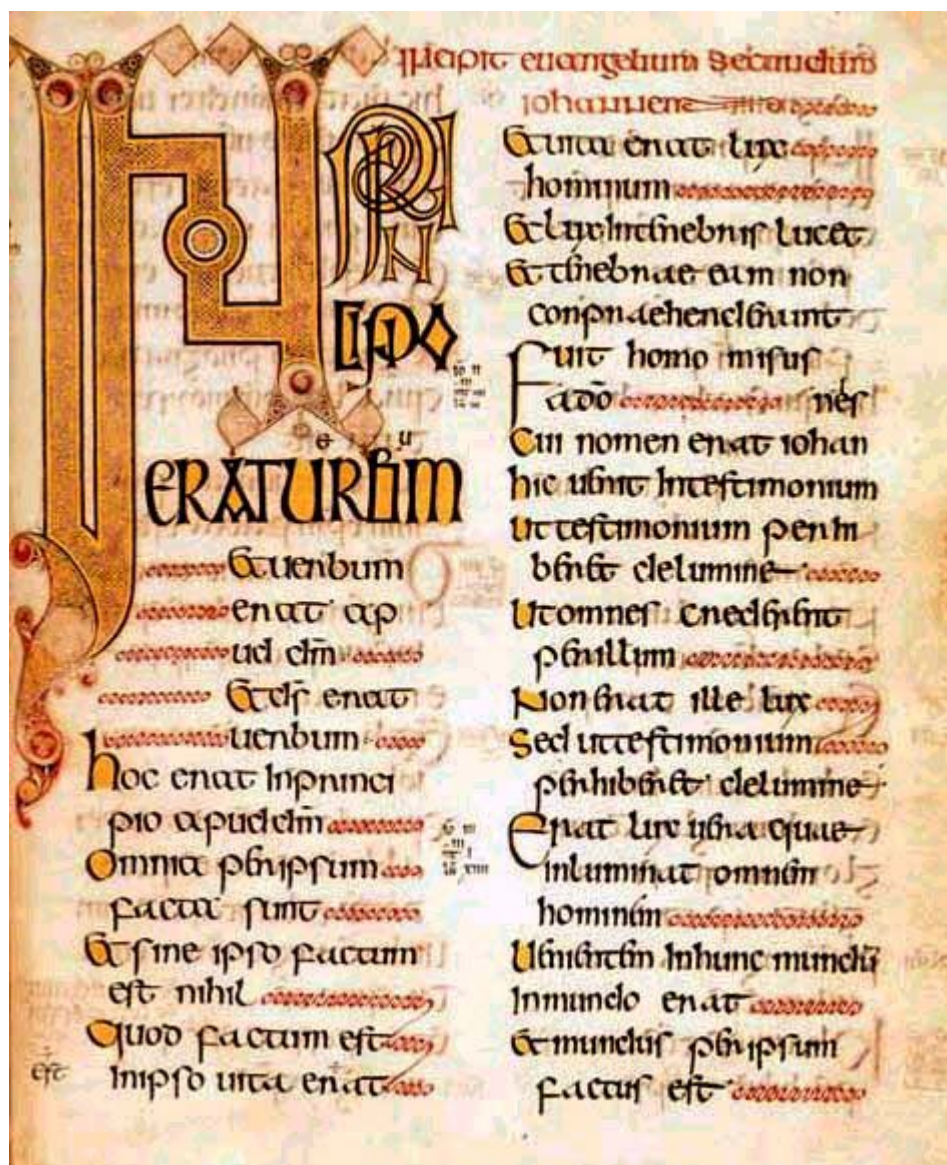 Incipit euangelium secundum
iohannen
IN PRIN
CIPIO
ERATUERBUM
Et uerbum
erat ap
ud dm̄
Et ds̄ erat
uerbum
hoc erat Inprinci
pio apud dm̄
Omnia per ipsum
facta sunt
Et sine ipso factum
est nihil
Quod factum est
Inipso uita erat
Et uita erat lux
hominum
Et lux Intenebris lucet
Et tenebrae eam non
conpraehenderunt
Fuit homo misus
ado
nes
Cui nomen erat iohan
hic uenit Intestimonium
Ut testimonium perhi
beret delumine
Utomnes crederent
perillum
Non erat ille lux
Sed ut testimonium
perhiberet delumine
Erat lux uera quae
inluminat omnem
hominem
Uenientem Inhunc mundū
Inmundo erat
Et mundus per ipsum
factus est